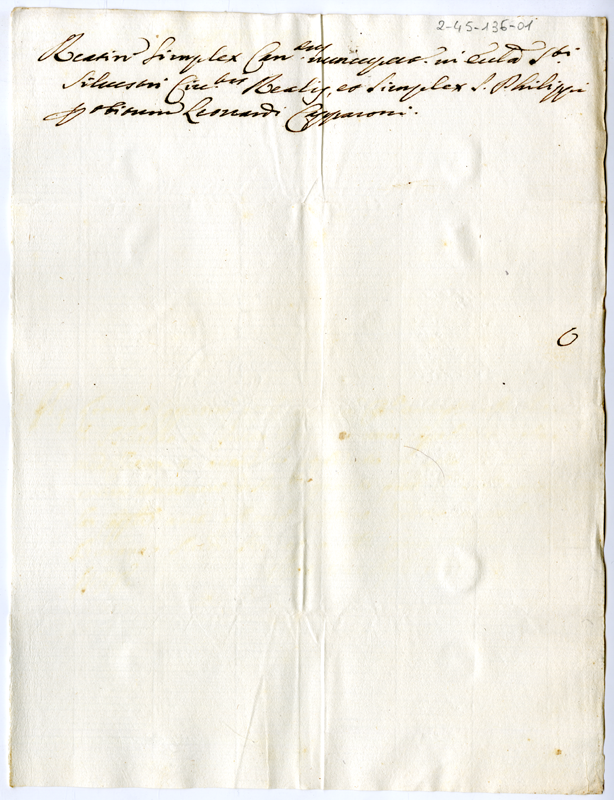 2-45-136-01
Reatin Simplex Can.tus nuncupat. in Eccl.a S.ti
Silvestri Civ.tas Reatis, et Simplex S. Philippi
obitum Leonardi Capparoni.